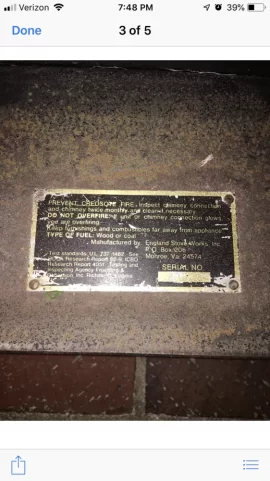 Verizon 7:48 PM 39%
Done 3 of 5
PREVENT CREOSOTE FIRE. Inspect chimney connection
and chimney twice monthly and clean if necessary.
DO NOT OVERFIRE. If unit or chimney connection glows,
you are overfiring.
Keep furnishings and combustibles far away from appliance
TYPE OF FUEL: Wood or coal
Manufactured by England Stove Works, Inc.
P.O. Box 206
Monroe, Va 24574
Test standards: UL 737 1482. See
Research Report
Research Report Testing and
Inspecting Agency
Inc. Richmond, Virginia
SERIAL NO